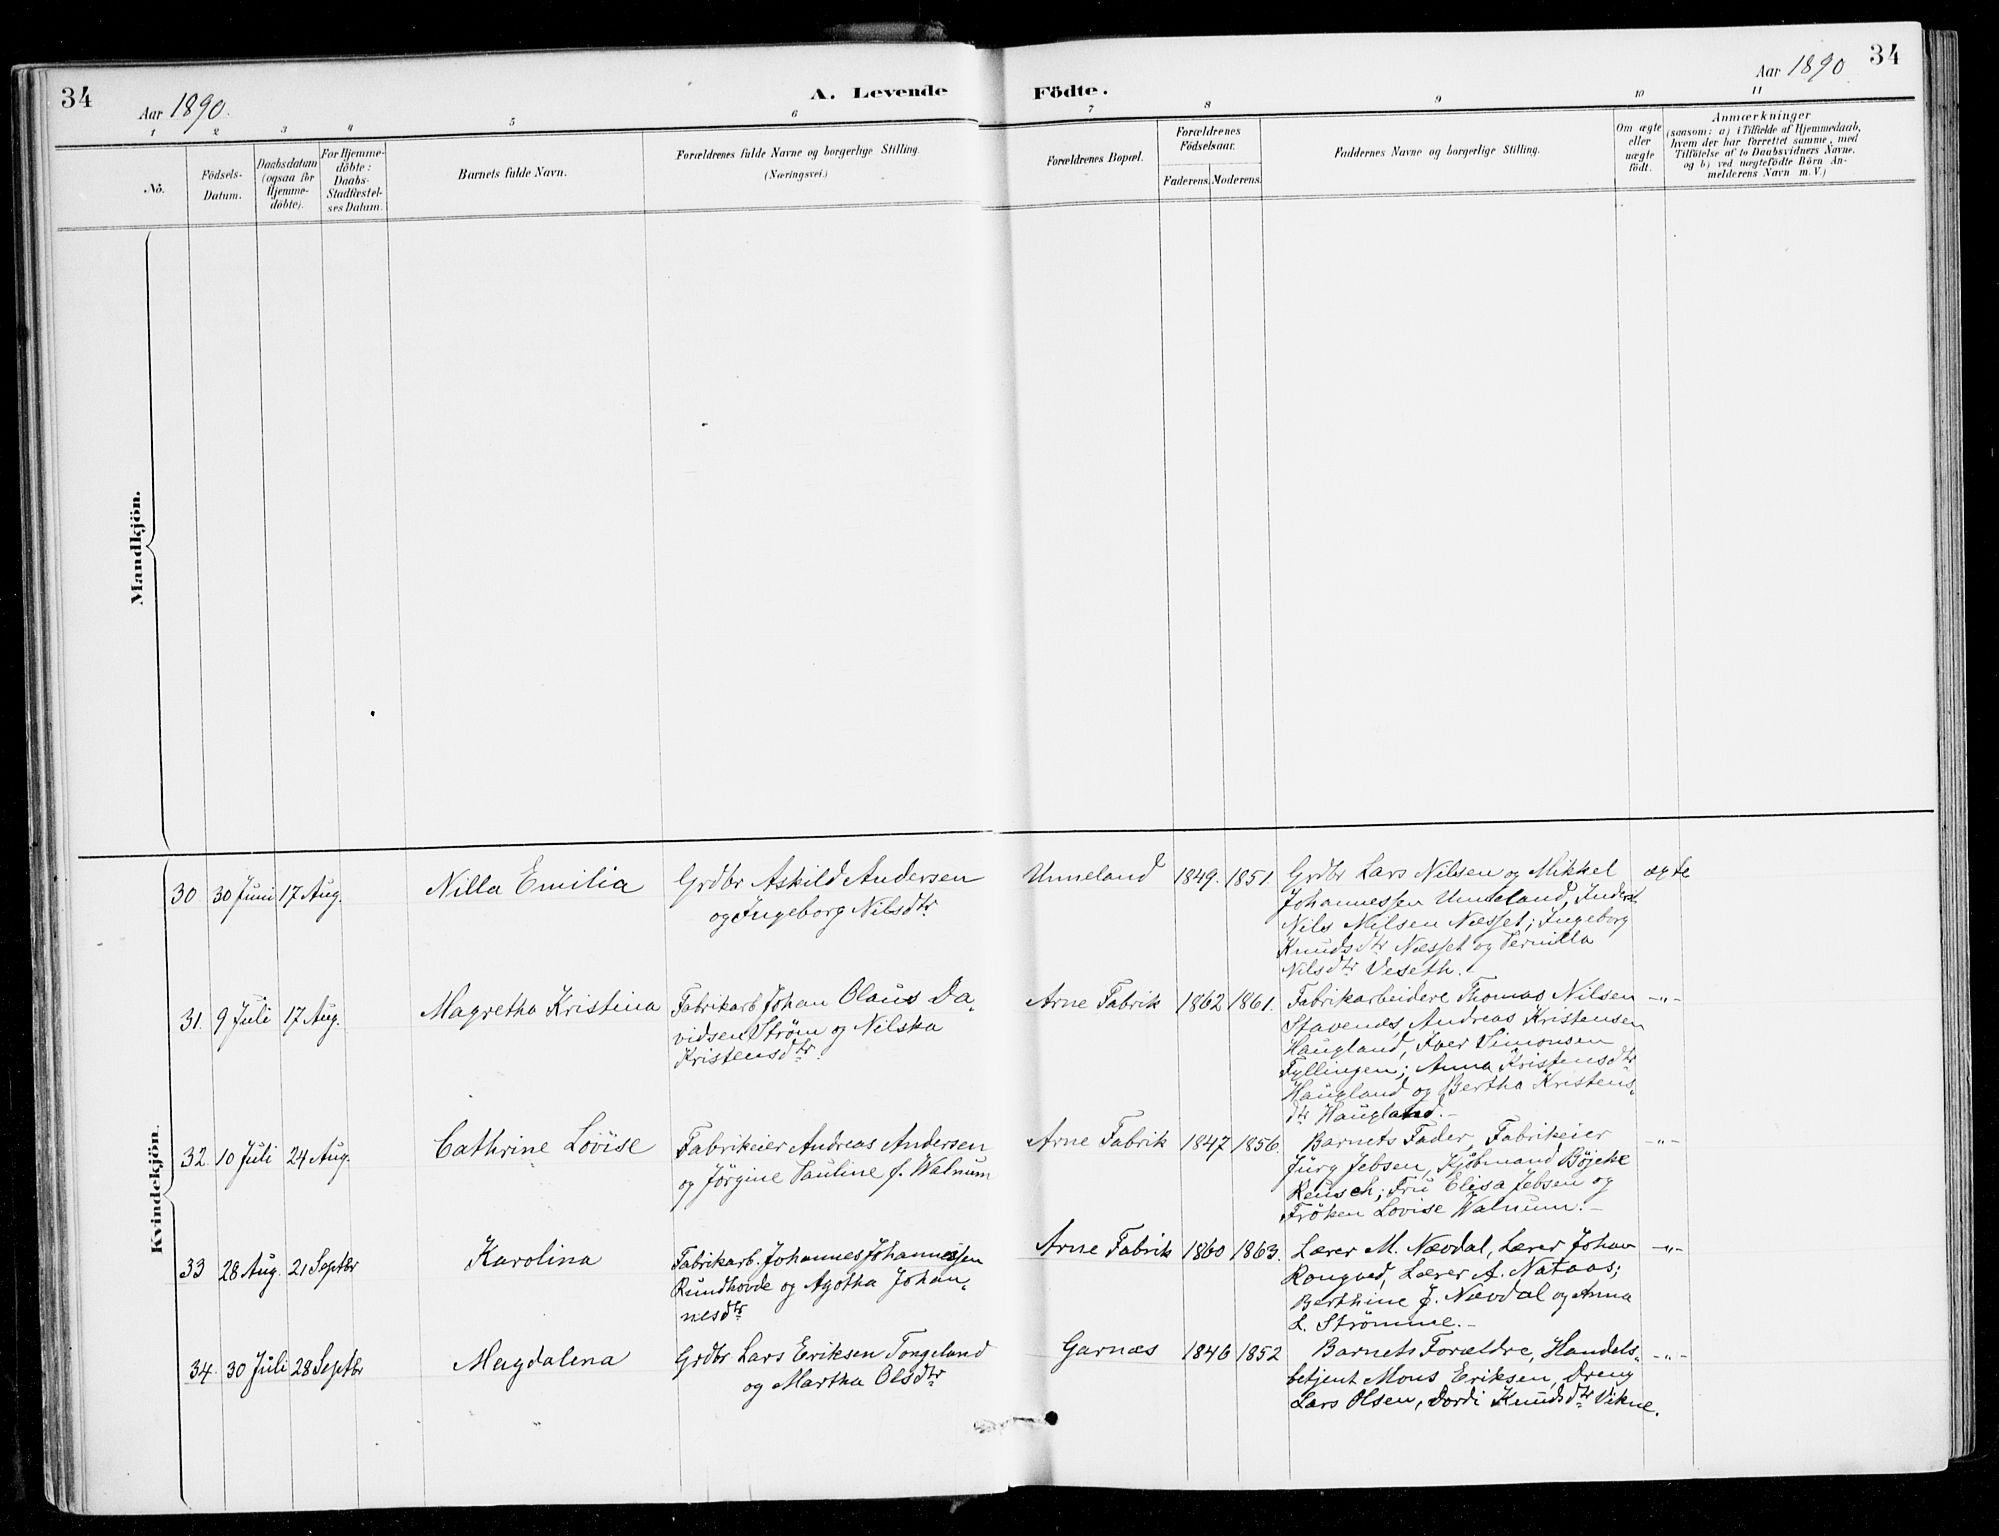 34
Aar 1890.
A. Levende Födte.
Aar 1890.
34
1 2 3 4 5 6 7 8 9 10 11
Nô.
Födsels-
Datum.
Daabsdatum
(ogsaa for
Hjemme-
döbte).
For Hjemme-
döbte:
Daabs-
Stadfæstel-
ses Datum.
Barnets fulde Navn.
Forældrenes fulde Navne og borgerlige Stilling.
(Næringsvei.)
Forældrenes Bopæl.
Forældrenes
Födselsaar.
Faderens. Moderens.
Faddernes Navne og borgerlige Stilling.
Om ægte
eller
uægte
födt.
Anmærkninger
(saasom: a) i Tilfælde af Hjemmedaab,
hvem der har forrettet samme, med
Tilföielse af to Daabsvidners Navne.
og b) ved uægtefödte Börn An-
melderens Navn m. V.)
Mandkjön.
Kvindekjön.
30 30 Juni 17 Aug.
Nilla Emilia
Grdbr Askild Andersen
og Ingeborg Nilsdtr
Unneland 1849. 1851.
Grdbr Lars Nilsen og Mikkel
Johannessen Unneland, Inderst
Nils Nilsen Næsset; Ingeborg
Knudsdtr Næsset og Pernilla
Nilsdtr Veseth.
ægte
31. 9 Juli 17 Aug.
Magretha Kristina
Fabrikarb. Johan Olaus Da-
vidsen Strøm og Nilska
Kristensdtr
Arne Fabrik 1862 1861.
Fabrikarbeidere Thomas Nilsen
Stavenes, Andreas Kristensen
Haugland, Iver Simonsen
Fyllingen; Anna Kristensdtr
Haugland og Bertha Kristens-
dtr Haugland.-
-"-
32. 10 Juli 24 Aug.
Cathrine Lovise
Fabrikeier Andreas Andersen
og Jørgine Pauline f. Walnum
Arne Fabrik 1847 1856.
Barnets Fader, Fabrikeier
Jürg Jebsen, Kjøbmand Bøjeke
Reusch; Fru Elisa Jebsen og
Frøken Lovise Walnum.-
-"-
33 28 Aug. 21 Septbr
Karolina
Fabrikarb. Johannes Johannessen
Rundhovde og Agotha Johan-
nesdtr
Arne Fabrik 1860 1863.
Lærer M. Nævdal, Lærer Johan
Rongved, Lærer A. Nataas;
Berthine J. Nævdal og Anna
L. Strømme.-
-"-
34. 30 Juli 28 Septbr
Magdalena
Grdbr Lars Eriksen Tongeland
og Martha Olsdtr
Garnæs 1846 1852
Barnets Forældre, Handels-
betjent Mons Eriksen, Dreng
Lars Olsen, Dordi Knudsdtr Vikne.
-"-